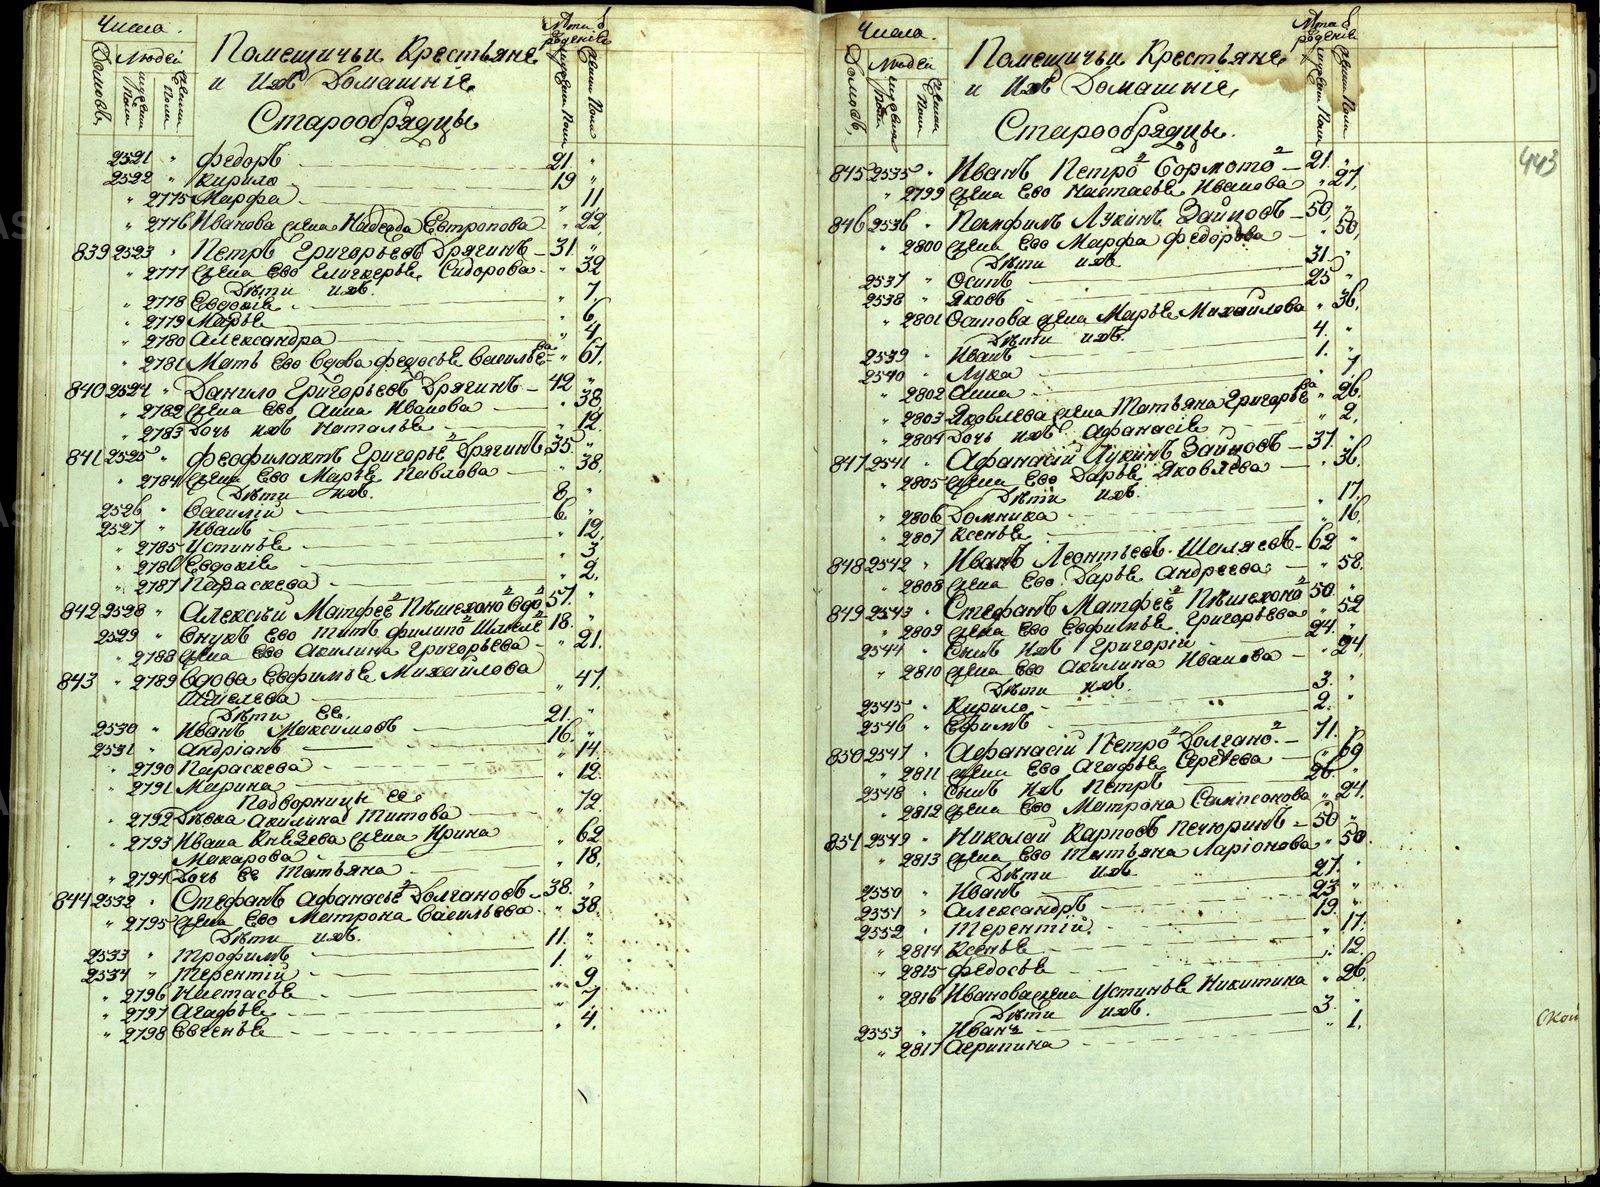 Числа.
Домовъ,
Людей
мужеска пола
женска пола
Помещичьи Крестьяне
и ихъ Домашніе,
Старообрядцы
Лѣта
рожденіе
мужеска пола
женска пола
2521 " Федоръ 21 "
2522 " Кирило 19 "
" 2775 Марфа " 11
" 2776 Иванова жена Надежда Евтропова " 22,
839 2523 " Петръ Григорьевъ Дрягинъ 31 "
" 2777 жена Ево Гликерья Сидорова " 32
Дѣти ихъ.
" 2778 Евдокіе " 7,
" 2779 Марье " 6,
" 2780 Александра " 4,
" 2781 Мать Ево Вдова Федосье Василье ва " 67,
840 2524 " Данило Григорьевъ Дрягинъ 42 "
" 2782 жена Ево Анна Иванова " 38
" 2783 Дочь ихъ Наталье " 12
841 2525 " Феофилактъ Григорье Дрягинъ 35 "
" 2784 жена Ево Марье Павлова " 38,
Дѣти ихъ.
2526 " Василій 8 "
2527 " Иванъ 6 "
" 2785 Устинье " 12,
" 2786 Евдокіе " 3
" 2787 Параскева " 2,
842 2528 " Алексѣй Матфее Пѣшехоно Вдо 57. "
2529 " Внукъ Ево Титъ Филипо Шмеле 18. "
" 2788 жена Ево Акилина Григорьева " 21.
843 " 2789 Вдова Евфимье Михайлова
" 47,
Дѣти Ее.
2530 " Иванъ Максимовъ 21. "
2531 " Андріанъ 16. "
" 2790 Параскева " 14.
" 2791 Марина " 12
Подворницы Ее
" 2792 Дѣвка Акилина Титова " 72
" 2793 Ивана Князева жена Ирина
Макарова " 62
" 2794 Дочь Ее Татьяна " 18,
844 2532 " Стефанъ Афанасье Долгановъ 38. "
" 2795 жена Ево Матрона Васильева " 38.
Дѣти ихъ.
2533 " Трофимъ 11. "
2534 " Терентій 1. "
" 2796 Настасье " 9
" 2797 Агафье " 7
" 2798 Евгенье " 4.
Числа.
Домовъ,
Людей
мужеска пола
женска пола
Помещичьи Крестьяне
и ихъ Домашніе,
Старообрядцы.
Лѣта
рожденіе
мужеска пола
женска пола
443
845 2535 " Иванъ Петро Бормото 21. "
" 2799 жена Ево Настасье Иванова " 27,
846 2536 " Памфилъ Лукинъ Займовъ 50, "
" 2800 жена Ево Марфа Федорова " 50,
Дѣти ихъ.
2537 " Осипъ 31 "
2538 " Яковъ 25 "
" 2801 Осипова жена Марье Михайлова " 36,
Дѣти ихъ.
2539 " Иванъ 4. "
2540 " Лука 1. "
" 2802 Анна " 7,
" 2803 Яковлева жена Татьяна Григорье ва " 26.
" 2804 Дочь ихъ Афанасіе " 2,
847 2541 " Афанасій Лукинъ Займовъ 37. "
" 2805 жена Ево Дарье Яковлева " 36.
Дѣти ихъ.
" 2806 Домника " 17,
" 2807 Ксенье " 16,
848 2542 " Иванъ Леонтьевъ Шиляевъ 62 "
" 2808 жена Ево Дарье Андреева " 58.
849 2543 " Стефанъ Матфее Пѣшехоно 50. "
" 2809 жена Ево Евфимье Григорьева " 52
2544 " Сынъ ихъ Григорій 24. "
" 2810 жена Ево Акилина Иванова " 24,
Дѣти ихъ.
2545 " Кирило 3. "
2546 " Ефимъ 2. "
850 2547 " Афанасій Петро Долгано. 71. "
" 2811 жена Ево Агафье " 69
2548 " Сынъ ихъ Петръ 26 "
" 2812 жена Ево Матрона Сампсонова " 24.
851 2549 " Николай Карповъ Печюринъ 50 "
" 2813 жена Ево Татьяна Ларіонова " 50.
Дѣти ихъ
2550 " Иванъ 27. "
2551 " Александръ 23 "
2552 " Терентій 19. "
" 2814 Ксенье " 17.
" 2815 Федосье " 12.
" 2816 Иванова жена Устинье Никитина " 26,
Дѣти ихъ.
2553 " Иванъ 3. "
" 2817 Агрипина " 1.
ской